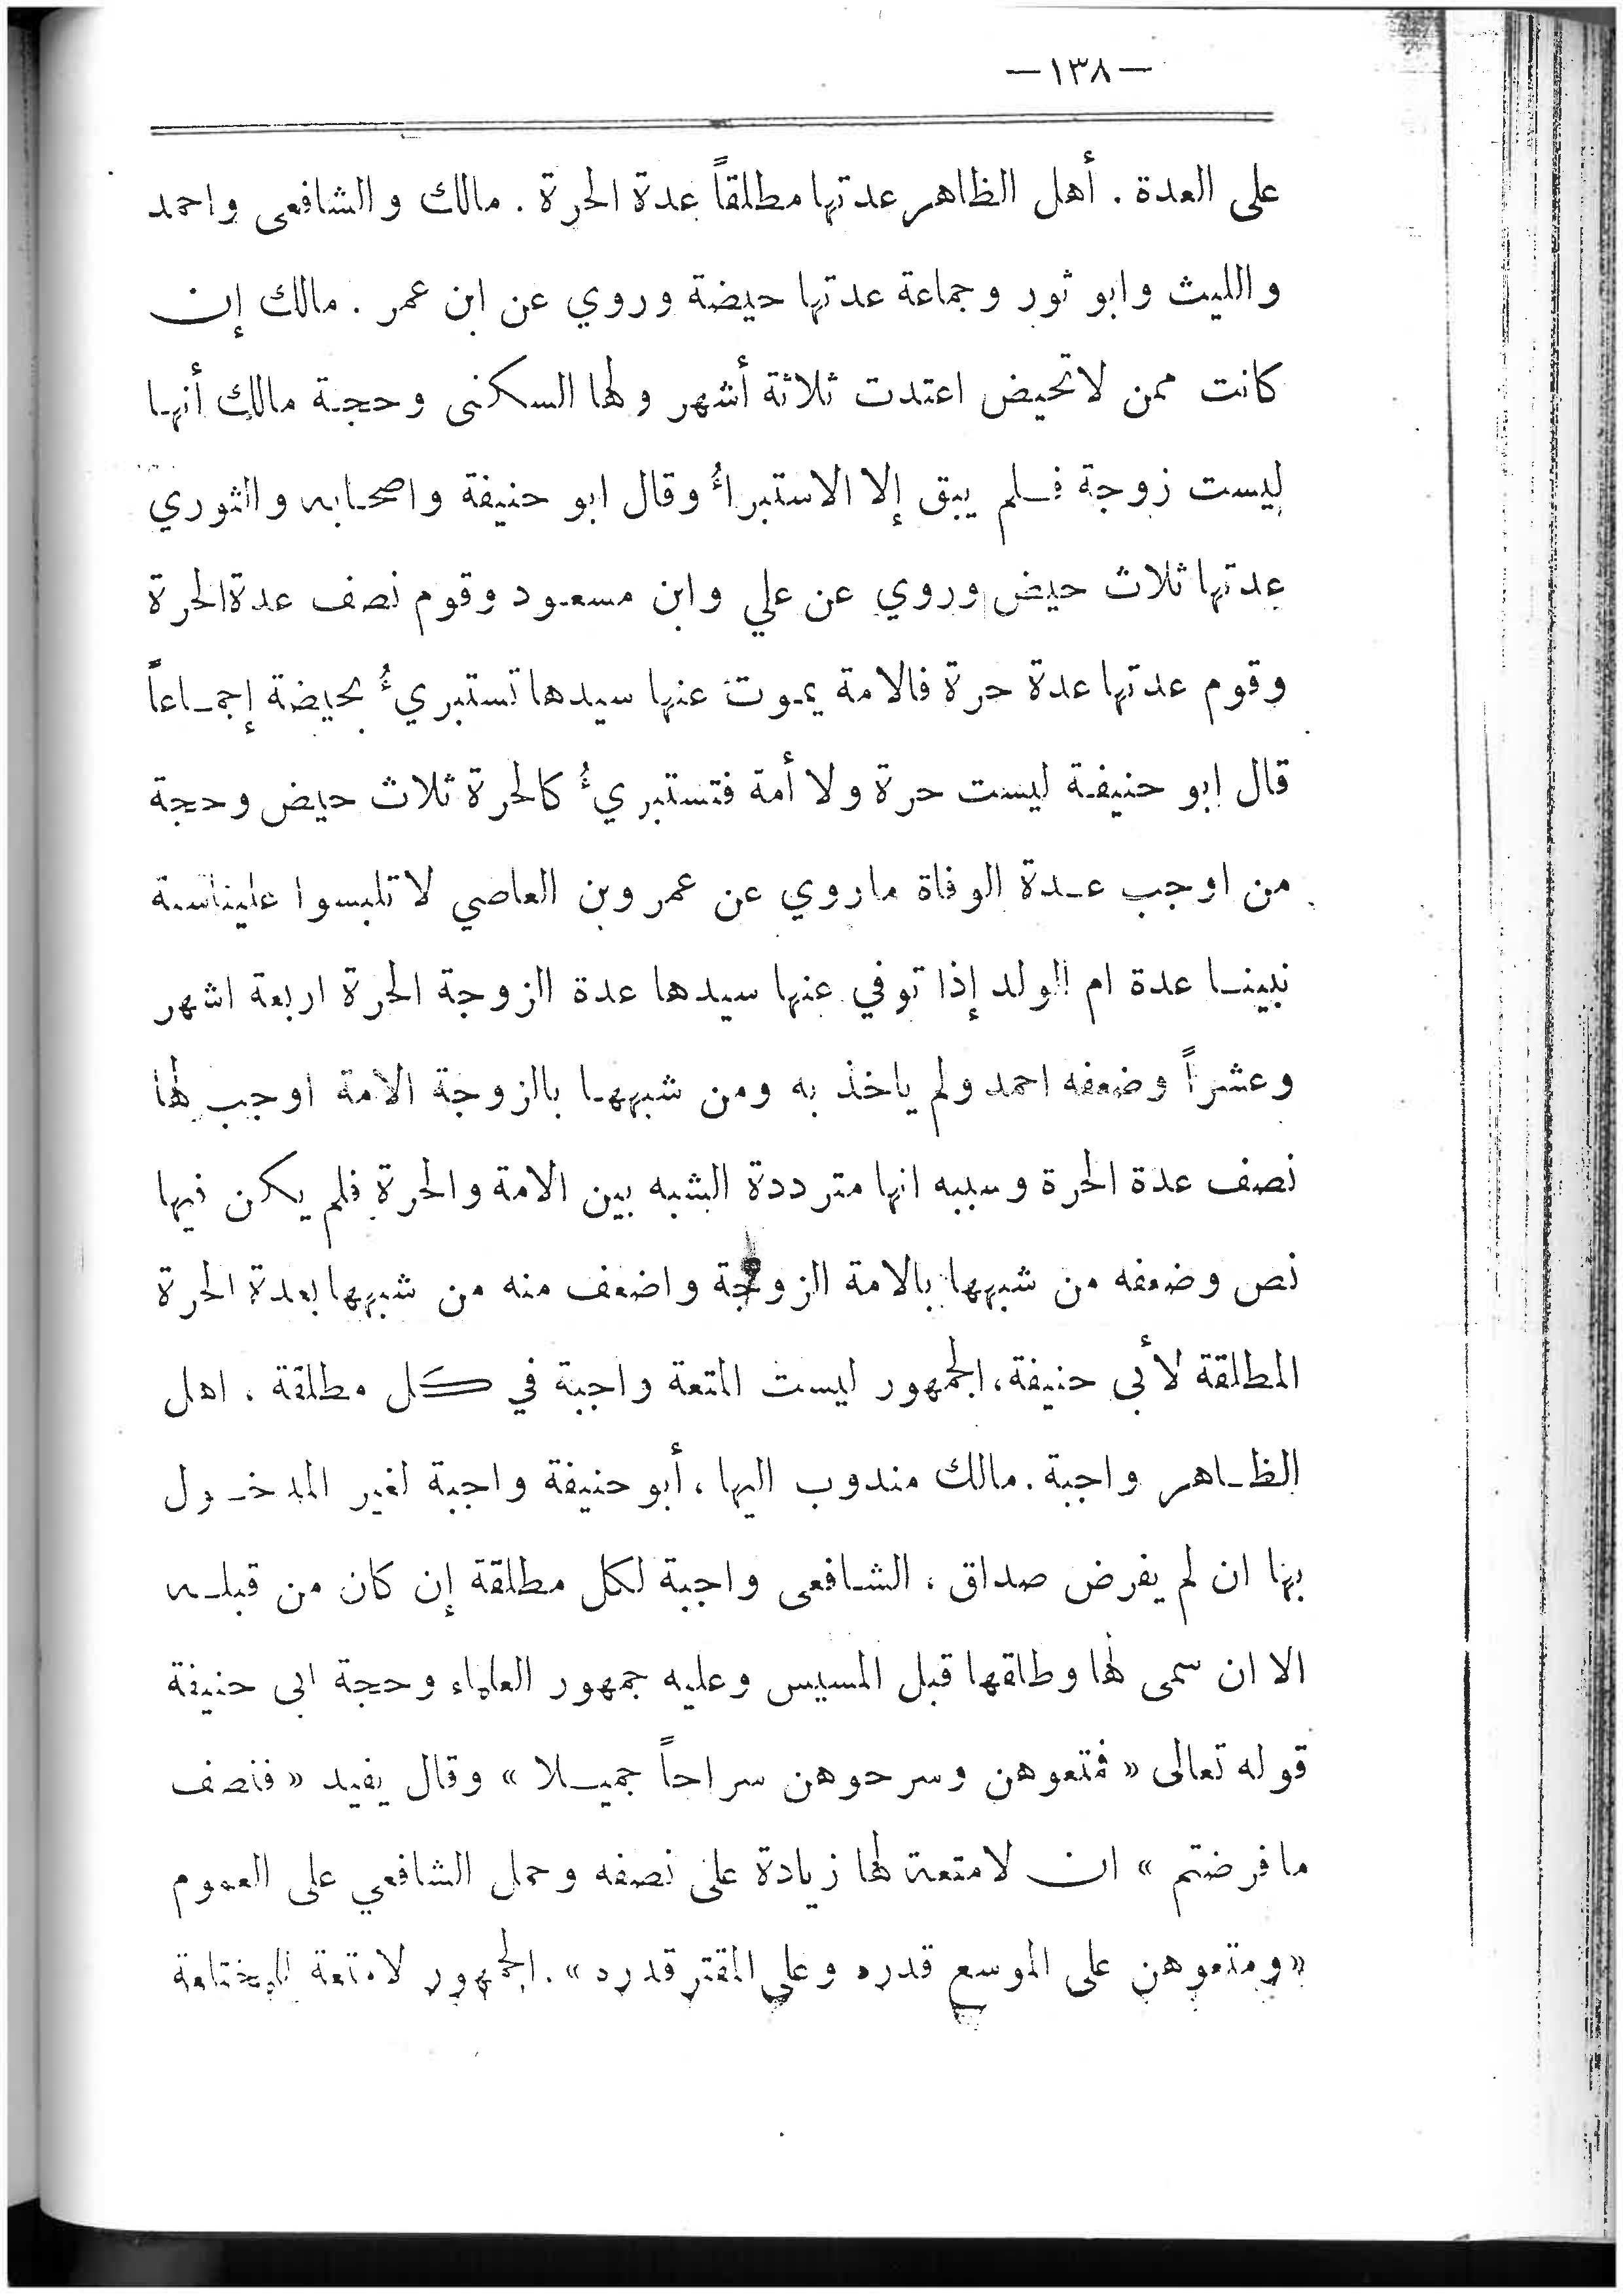 —١٣٨—
على العدة . أهل الظاهر عدتها مطلقاً عدة الحرة . مالك والشافعى واحمد
والليث وابو ثور وجماعة عدتها حيضة وروي عن ابن عمر . مالك إن
كانت ممن لاتحيض اعتدت ثلاثة أشهر ولها السكنى وحجة مالك أنها
ليست زوجة فلم يبق إلا الاستبرأُ وقال ابو حنيفة واصحابه والثوري
عدتها ثلاث حيض وروي عن علي وابن مسعود وقوم نصف عدة الحرة
وقوم عدتها عدة حرة فالامة يموت عنها سيدها تستبريُ بحيضة إجماعاً
قال ابو حنيفة ليست حرة ولا أمة فتستبريُ كالحرة ثلاث حيض وحجة
من اوجب عدة الوفاة ماروي عن عمر وبن العاصي لا تلبسوا علينا سنة
نبينا عدة ام الولد إذا توفي عنها سيدها عدة الزوجة الحرة اربعة اشهر
وعشراً وضعفه احمد ولم ياخذ به ومن شبهها بالزوجة الامة اوجب لها
نصف عدة الحرة وسببه انها مترددة الشبه بين الامة والحرة فلم يكن فيها
نص وضعفه من شبهها بالامة الزوجة واضعف منه من شبهها بعدة الحرة
المطلقة لأبى حنيفة، الجمهور ليست المتعة واجبة في كل مطلقة . اهل
الظاهر واجبة . مالك مندوب اليها ، أبو حنيفة واجبة لغير المدخول
بها ان لم يفرض صداق ، الشافعى واجبة لكل مطلقة إن كان من قبله
الا ان سمى لها وطلقها قبل المسيس وعليه جمهور العلماء وحجة ابى حنيفة
قوله تعالى « فمتعوهن وسرحوهن سراحاً جميلا » وقال يفيد « فنصف
مافرضتم » ان لامتعة لها زيادة على نصفه وحمل الشافعي على العموم
«ومتعوهن على الموسع قدره وعلى المقتر قدره» . الجمهور لامتعة للمختلعة